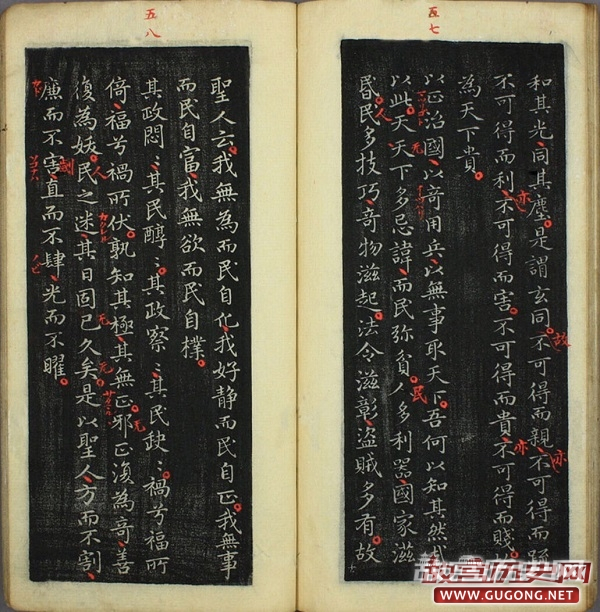 五七
和其光同其塵是謂玄同不可得而親不可得而疏
不可得而利不可得而害不可得而貴不可得而賤故
為天下貴
以正治國以奇用兵以無事取天下吾何以知其然哉
以此夫天下多忌諱而民弥貧人多利器國家滋
昬民多技巧奇物滋起法令滋彰盜賊多有故
故
亦
亦
亦
民
人
五八
聖人云我無為而民自化我好静而民自正我無事
而民自富我無欲而民自樸
其政悶〻其民醇〻其政察〻其民缺〻禍兮福所
倚福兮禍所伏孰知其極其無正邪正復為奇善
復為妖民之迷其日固已久矣是以聖人方而不割
廉而不害直而不肆光而不曜
无
无
人
故宫历史网
WWW.GUGONG.NET